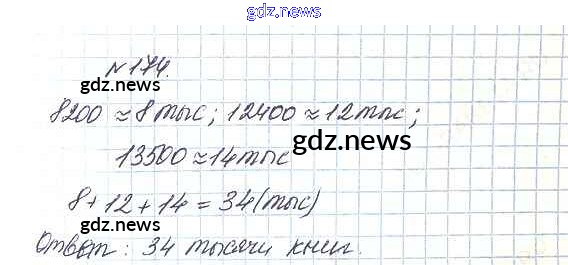 gdz.news
№ 174.
gdz.news
8200 ≈ 8 тыс; 12400 ≈ 12 тыс;
gdz.news
13500 ≈ 14 тыс
8 + 12 + 14 = 34 (тыс)
gdz.news
Ответ: 34 тысячи книг.